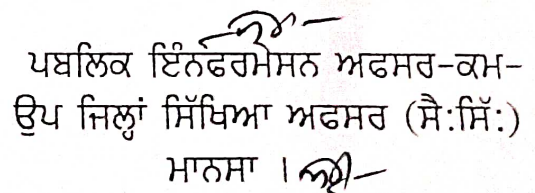 ਪਬਲਿਕ ਇੰਨਫਰਮੇਸਨ ਅਫਸਰ-ਕਮ-
ਉਪ ਜਿਲ੍ਹਾਂ ਸਿੱਖਿਆ ਅਫਸਰ (ਸੈ:ਸਿੱ:)
ਮਾਨਸਾ ।